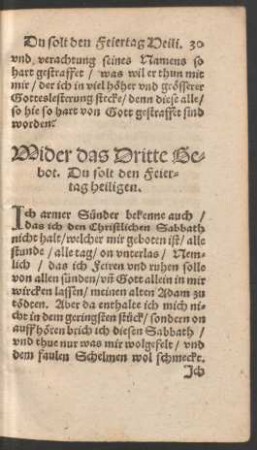 Du solt den Feiertag Heili. 30
vnd verachtung seines Namens so
hart gestraffet / was wil er thun mit
mir / der ich in viel höher vnd grösserer
Gotteslesterung stecke / denn diese alle /
so hie so hart von Gott gestraffet sind
worden.
Wider das Dritte Ge-
bot. Du solt den Feier-
tag heiligen.
Ich armer Sünder bekenne auch /
das ich den Christlichen Sabbath
nicht halt / welcher mir geboten ist / alle
stunde / alle tag / on vnterlas / Nem-
lich / das ich Feiren vnd ruhen solle
von allen sünden / vñ Gott allein in mir
wircken lassen / meinen alten Adam zu
tödten. Aber da enthalte ich mich ni-
cht in dem geringsten stück / sondern on
auffhören brich ich diesen Sabbath /
vnd thue nur was mir wolgefelt / vnd
dem faulen Schelmen wol schmeckt.
Ich